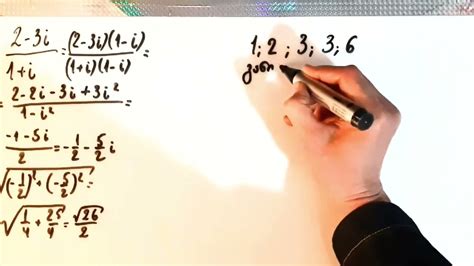 2-3i / 1+i = (2-3i)(1-i) / (1+i)(1-i) =
= 2-2i-3i+3i² / 1-i² =
-1-5i / 2 = -1/2 - 5/2 i
√(-1/2)²+(-5/2)² =
√1/4+25/4 = √26/2
1; 2 ; 3; 3; 6
გან